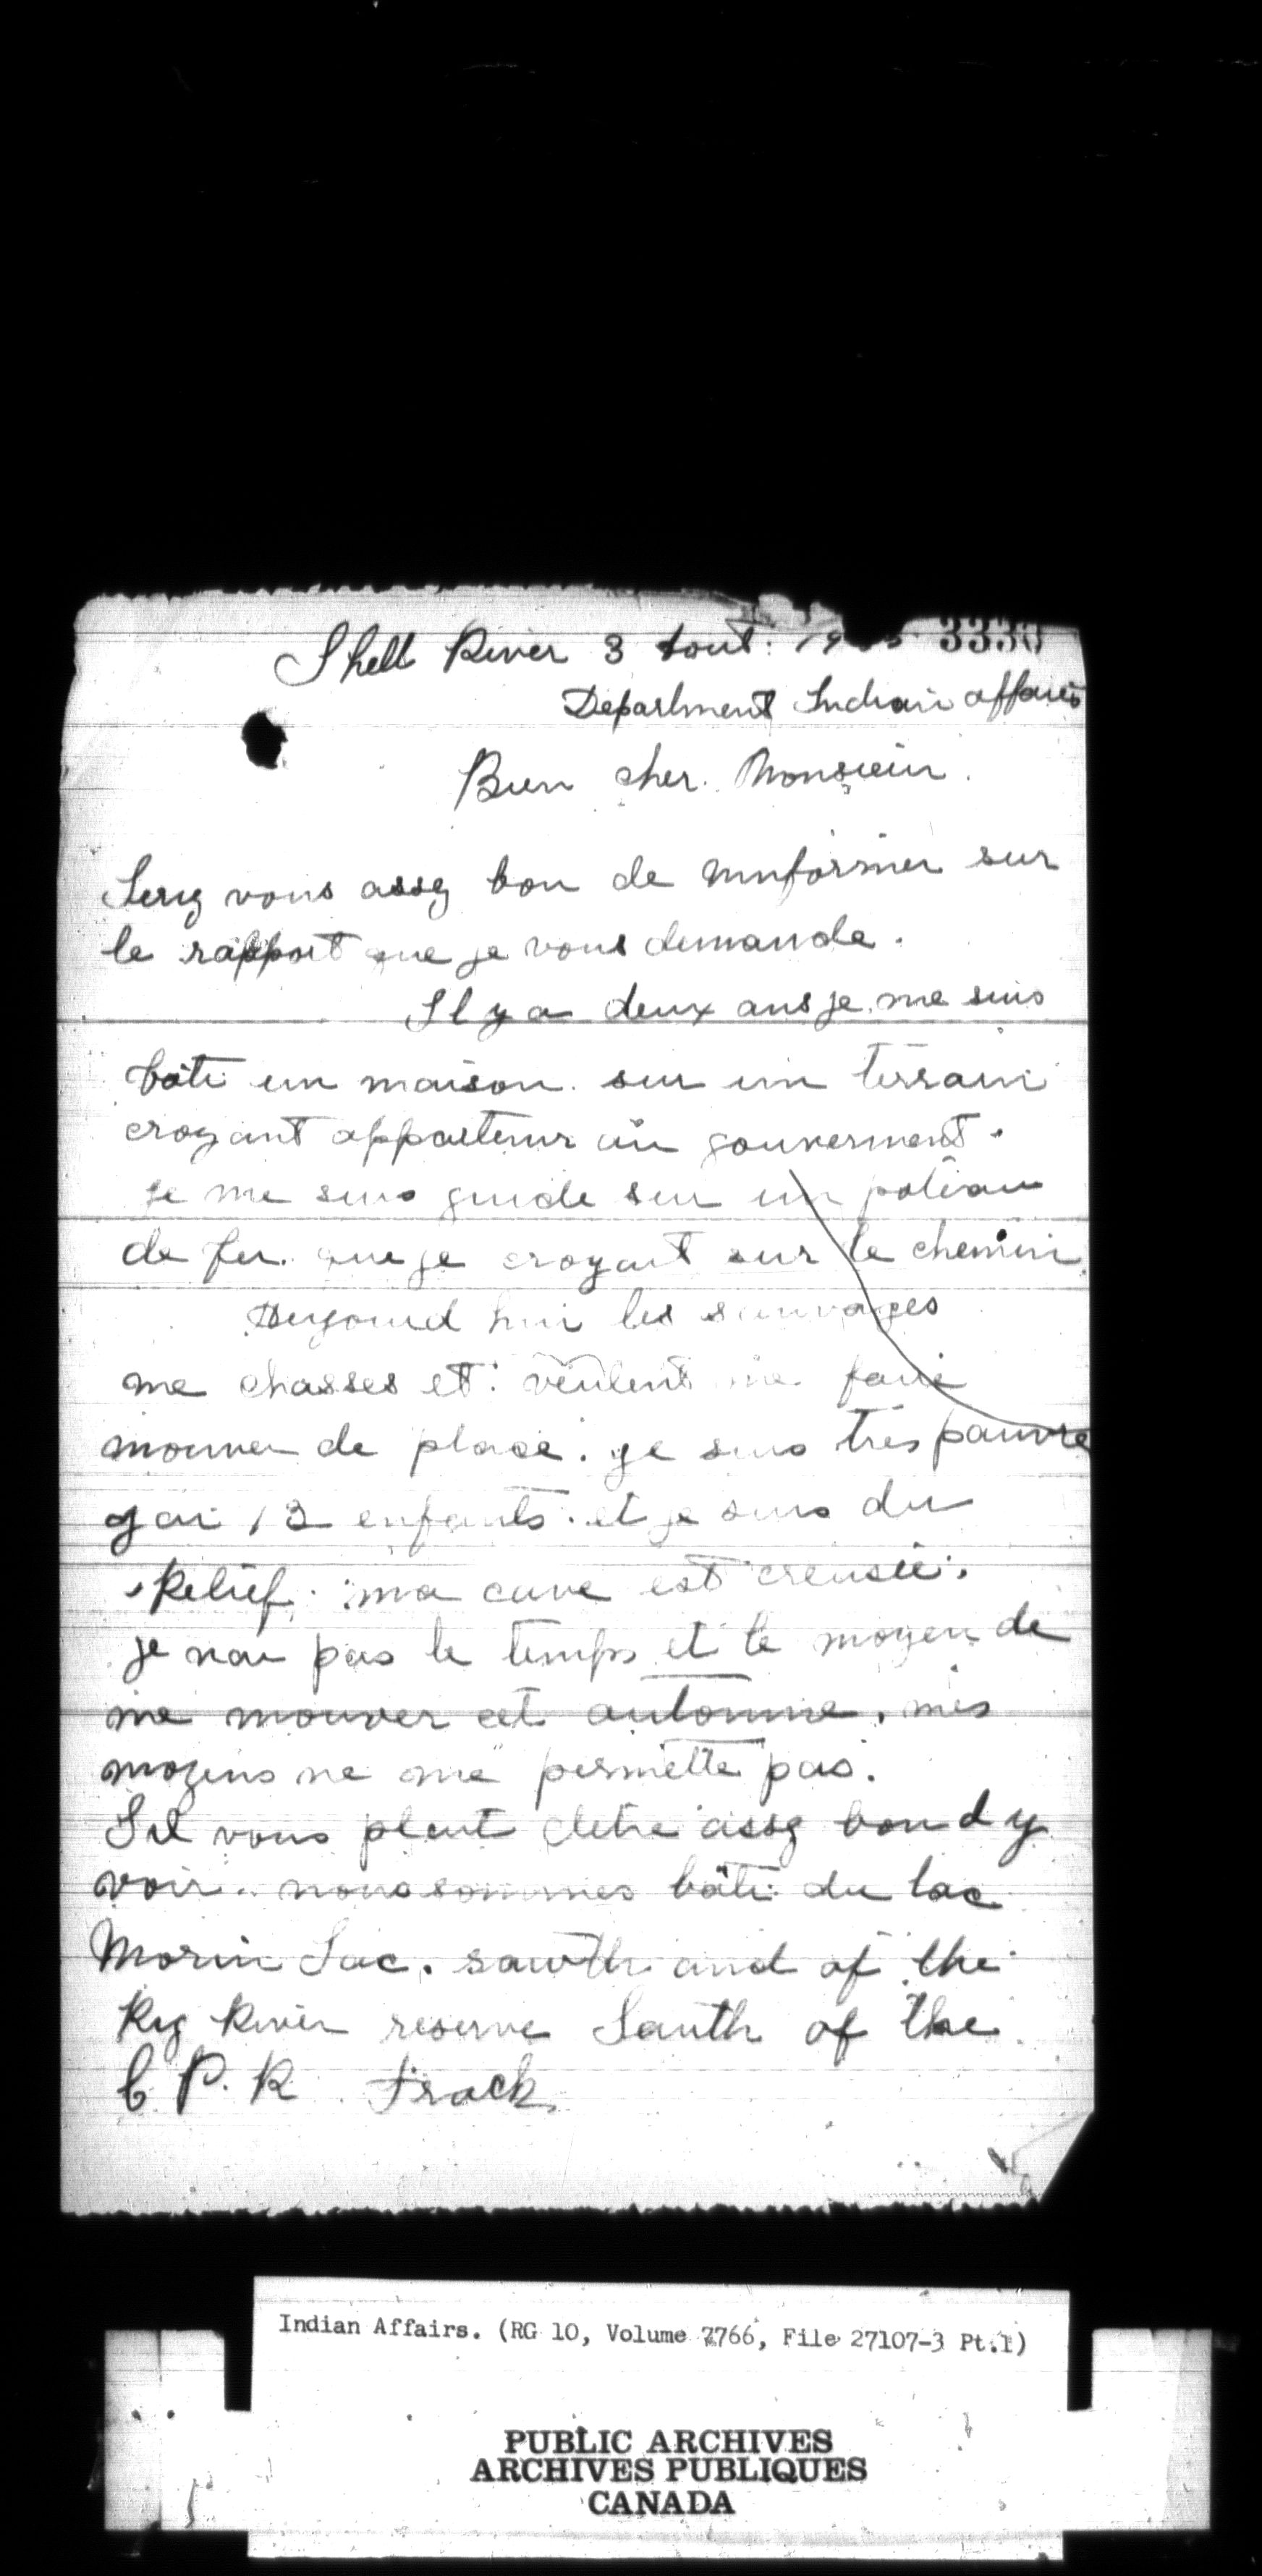 Shell River 3 Aout. 19 3333
Department Indian affairs
Bien cher. Monsieur.
Seriz vous assez bon de m'informer sur
le rapport que je vous demande.
Il y a deux ans je me suis
bâti un maison sur un terrain
croyant appartenir au gouverment.
Je me suis guide sur un poteau
de fer. que je croyait sur le chemin.
les sauvages
me chasses et veulent me faire
mouver de place. je suis très pauvre
gai 13 enfants. et je suis du
Relief. ma cave est creusée.
je nai pas le temps et le moyen de
me mouver cet automne, mes
moyens ne me permette pas.
Sil vous plait detre assez bon d y
voir. nous sommes bâti du lac
Morin Lac. sowth and of the
Rig River reserve South of the
C P. R track
Indian Affairs. (RG 10, Volume 7766, File 27107-3 Pt.1)
PUBLIC ARCHIVES
ARCHIVES PUBLIQUES
CANADA